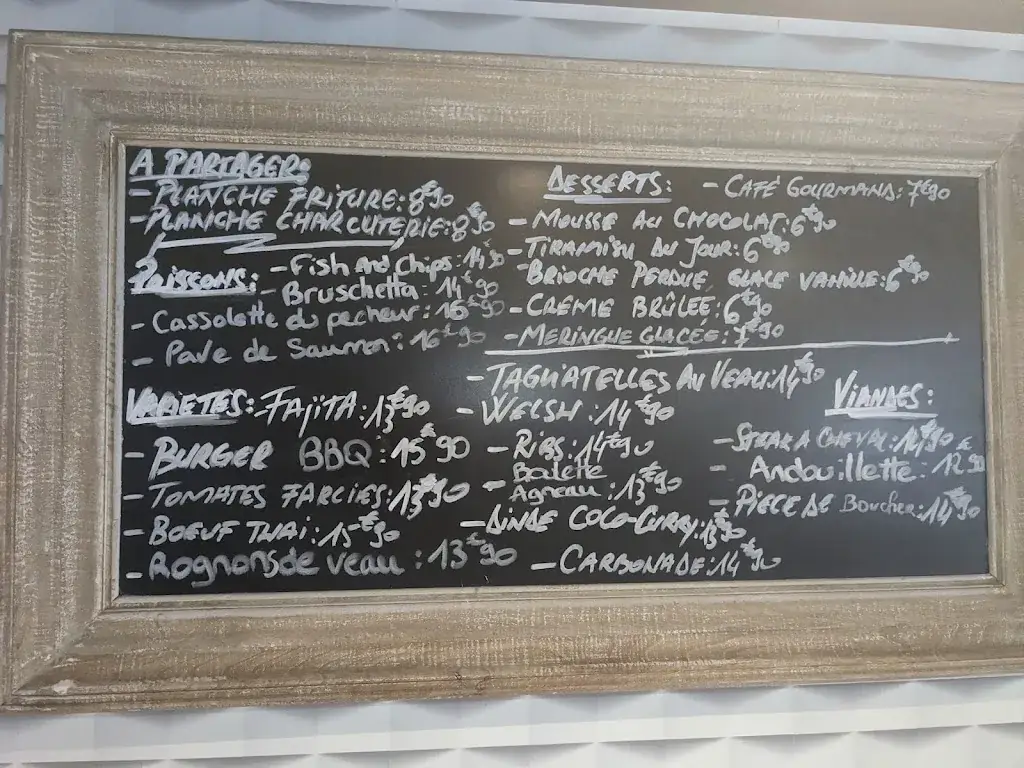 A PARTAGER:
- PLANCHE FRITURE: 8€90
- PLANCHE CHARCUTERIE: 8€90
POISSONS: - Fish And Chips: 14€90
- Bruschetta: 14€90
- Cassolette du pecheur: 16€90
- Pave de Saumon: 16€90
DESSERTS: - CAFÉ GOURMAND: 7€90
- MOUSSE AU CHOCOLAT: 6€90
- TIRAMISU DU JOUR: 6€90
- BRIOCHE PERDUE, GLACE VANILLE: 6€90
- CREME BRÛLÉE: 6€90
- MERINGUE GLACÉE: 7€90
VARIETES: - FAJÏTA: 13€90
- BURGER BBQ: 15€90
- TOMATES FARCIES: 13€90
- BOEUF THAI: 15€90
- Rognons de veau: 13€90
- TAGLIATELLES AU VEAU: 14€90
- WELSH: 14€90
- RIBS: 14€90
- Boulette
Agneau: 13€90
- DINDE COCO-CURRY: 13€90
- CARBONADE: 14€90
VIANDES:
- STEAK A CHEVAL: 14€90
- Andouillette: 12€90
- PIECE DE Boucher: 14€90